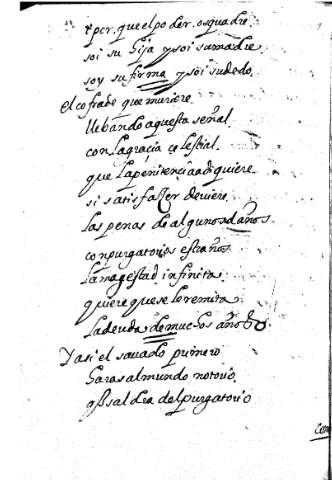 y por que el poder os quadre
soi su Hija y soi su madre
soy su firma y soi su dedo
el cofrade que muriere
llebando aquesta señal
con la gracia celestial
que la penitencia adquiere
si satisfazer deviere
las penas de algunos daños
con purgatorios estraños
la magestad infinita
quiere que se le remita
la deuda de muchos años
Y asi el savado primero
Haras al mundo notorio
saldra del purgatorio